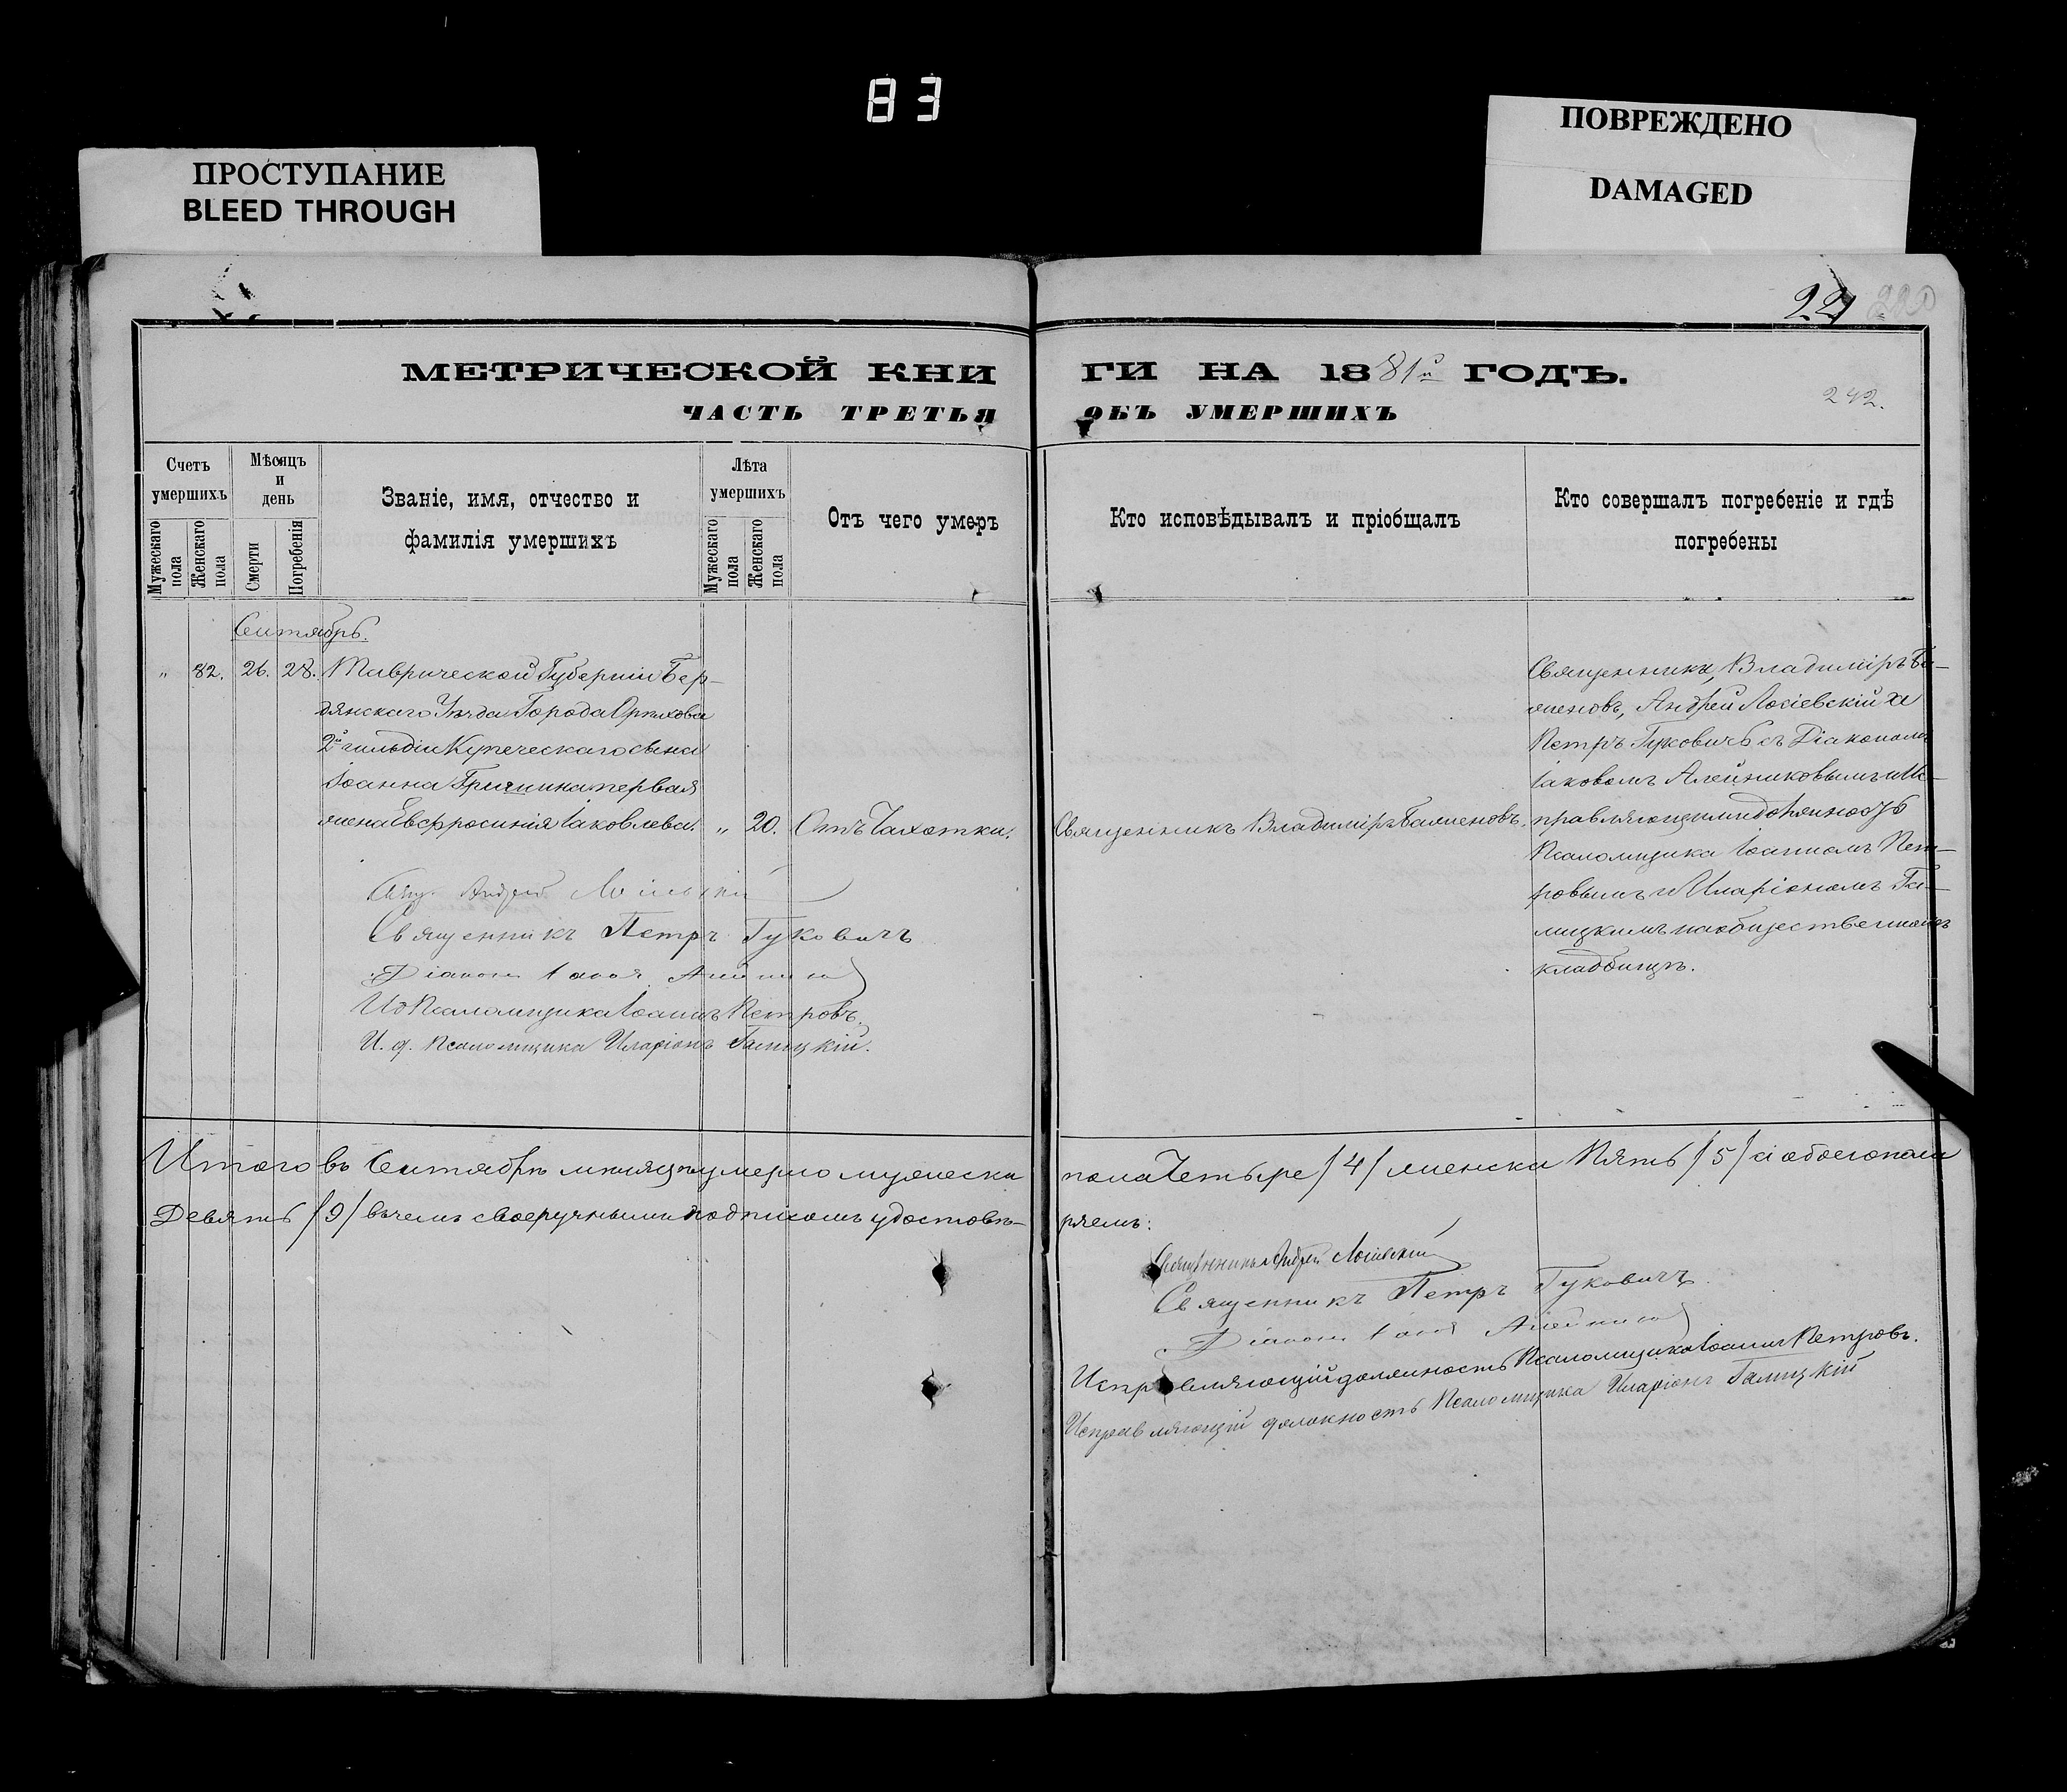 83
ПРОСТУПАНИЕ
BLEED THROUGH
ПОВРЕЖДЕНО
DAMAGED
221
242.
МЕТРИЧЕСКОЙ КНИ
ГИ НА 1881й ГОДЪ.
ЧАСТЬ ТРЕТЬЯ
ОБЪ УМЕРШИХЪ
Счетъ умершихъ
Мужескаго пола
Женскаго пола
Мѣсяцъ и день
Смерти
Погребенія
Званіе, имя, отчество и фамилія умершихъ
Лѣта умершихъ
Мужескаго пола
Женскаго пола
Отъ чего умеръ
Кто исповѣдывалъ и пріобщалъ
Кто совершалъ погребеніе и гдѣ погребены
Сентябрь.
" 82. 26. 28. Таврической Губерніи Бер-
дянскаго Уѣзда Города Орѣхова
2й гильдіи Купеческаго сына
Іоанна первая
жена Евфросинія Іаковлева. " 20. Отъ Чахотки.
Священникъ Владиміръ Баженовъ.
Священники, Владиміръ Ба-
женовъ, Андрей Лосіевскій и
Петръ Гуковичь съ Діакономъ
Іаковомъ Алейниковымъ и Ис-
правляющими должность
Псаломщика Іоанномъ Пет-
ровымъ и Иларіономъ Га-
лицкимъ на общественномъ
кладбищѣ.
Свящ. Андрей Лосіевскій
Священникъ Петръ Гуковичъ
Діаконъ Іаковъ
И д Псаломщика Іоаннъ Петровъ.
И. д. Псаломщика Иларіонъ Галицкій.
Итого въ Сентябрѣ мѣсяцѣ умерло мужеска
пола Четыре /4/ женска Пять /5/ а обоего пола
Девять /9/ въ чемъ своеручнымъ подписомъ удостовѣ-
ряемъ:
Священникъ Андрей Лосіевскій
Священникъ Петръ Гуковичъ.
Діаконъ Іаковъ
Исправляющій должность Псаломщика Іоаннъ Петровъ.
Исправляющій должность Псаломщика Иларіонъ Галицкій